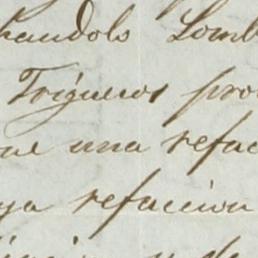 handolo Lomb
Trigueros pro
que una refac
ya refaccion